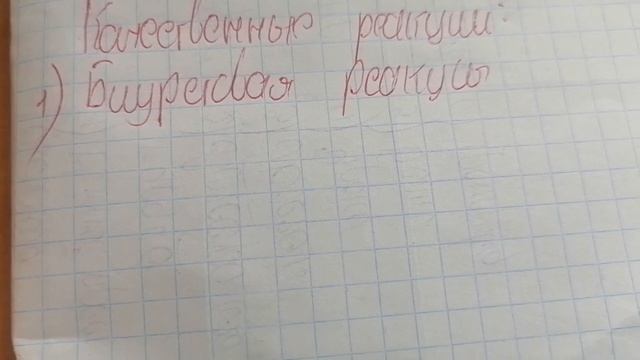 Качественные реакции:
1) Биуретовая реакция